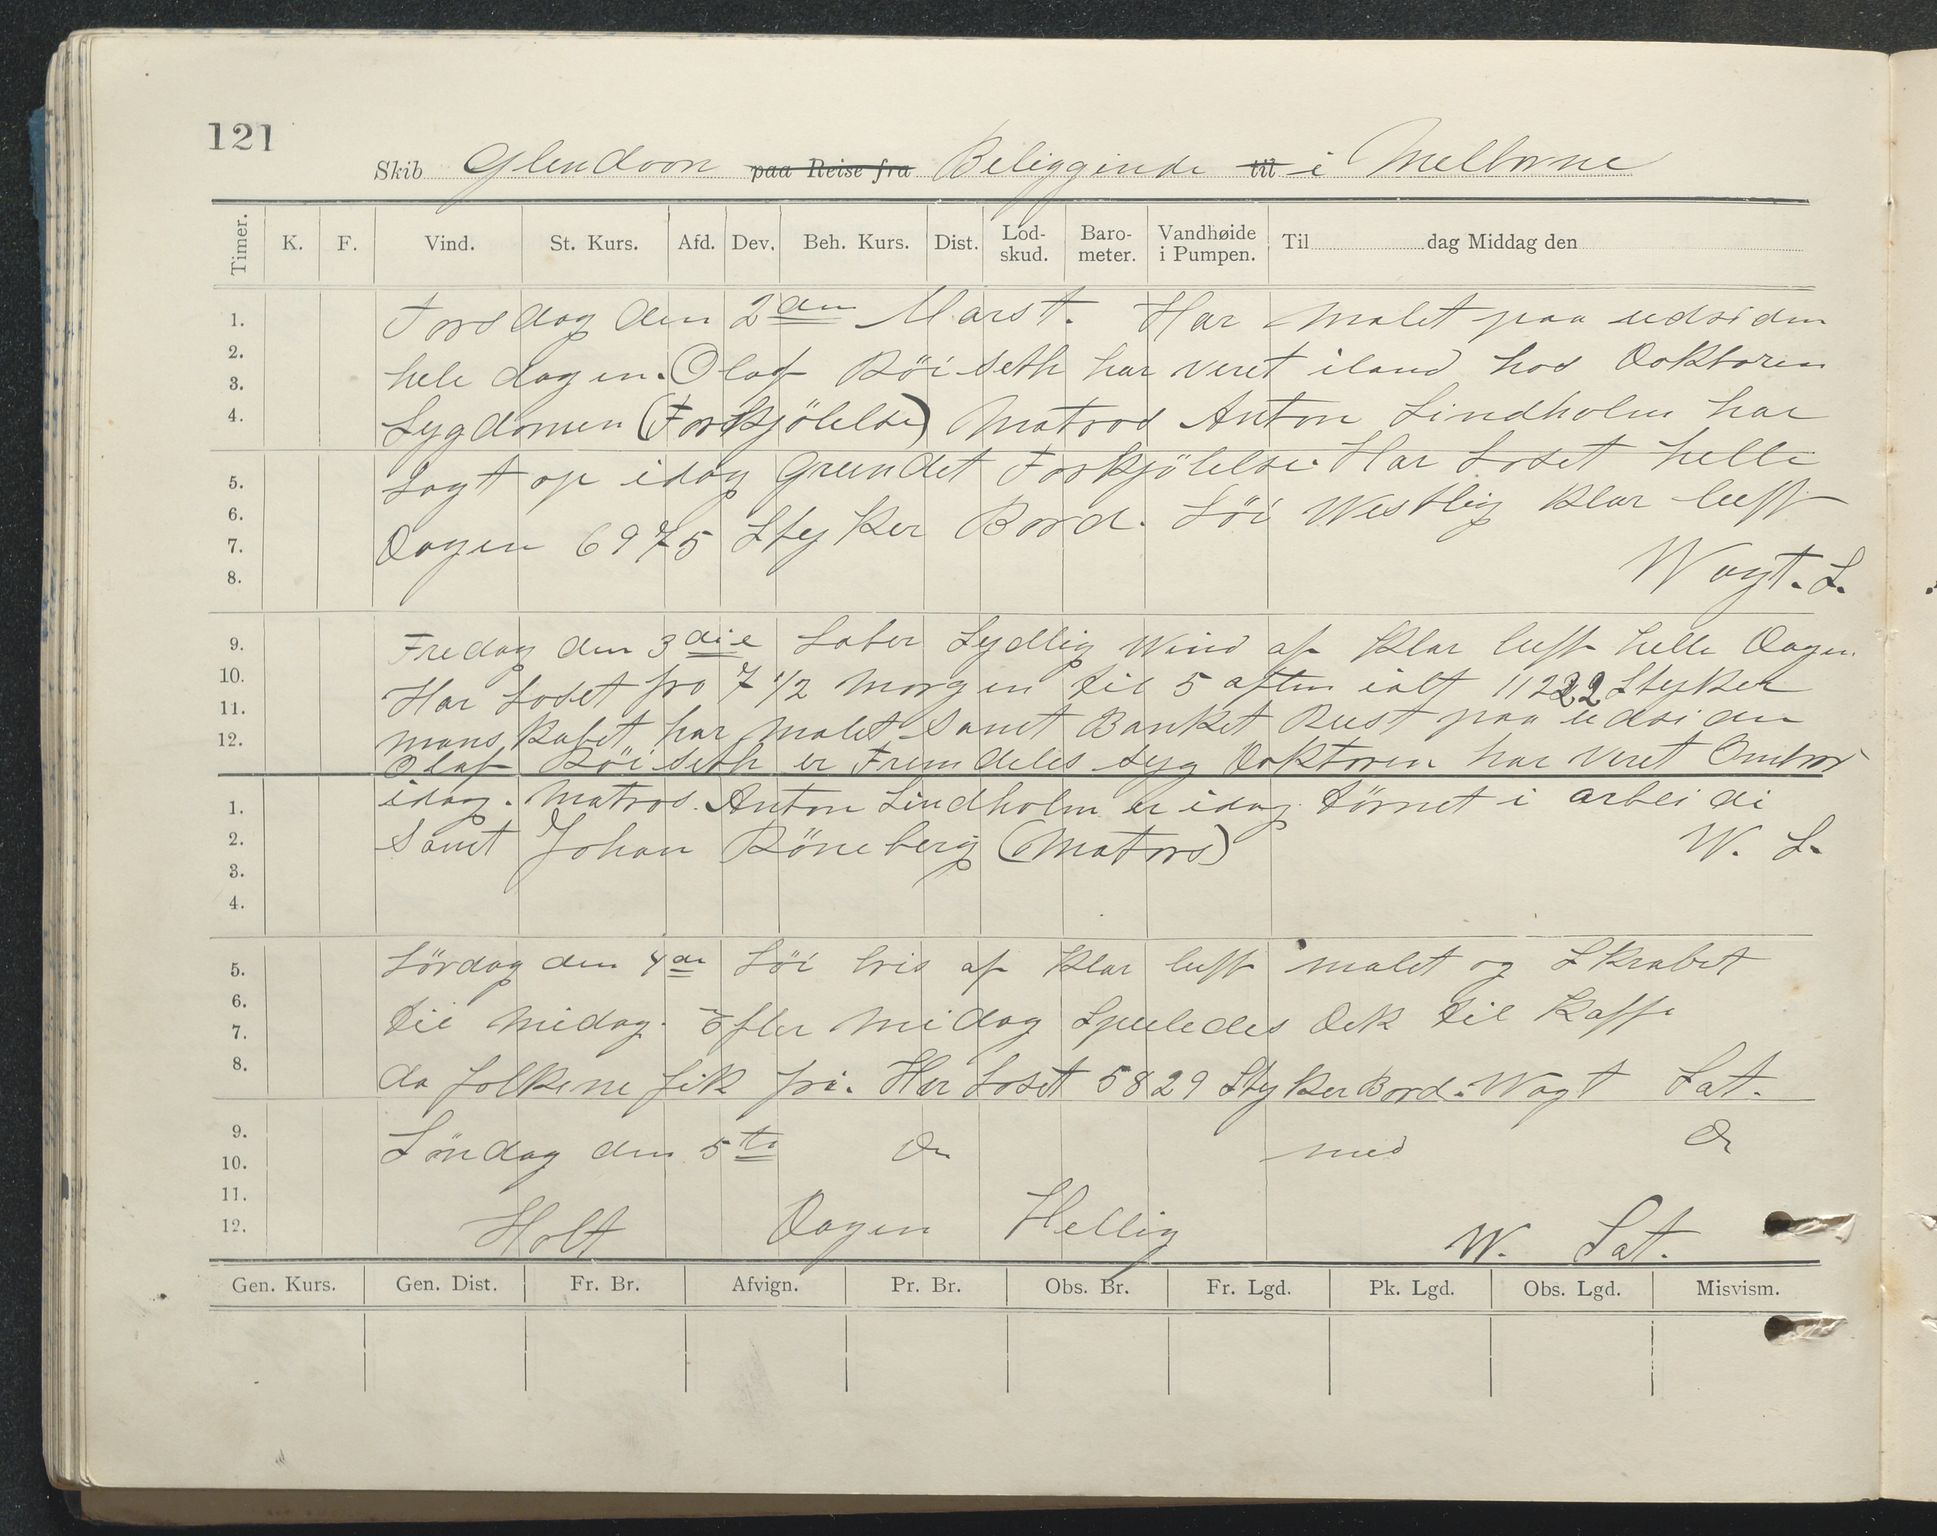 121
Skib Glendoon paa Reise fra Beliggende til i Melborne
Timer. K. F. Vind. St. Kurs. Afd. Dev. Beh. Kurs. Dist. Lod-skud. Baro-meter. Vandhøide i Pumpen. Til dag Middag den
1. Torsdag den 2den Marst. Har malet paa udsiden
2. hele dagen. Olaf Röiseth har veret iland hos Doktoren
3.
4. Sygdomen (Forkjölelse) Matros Anton Lindholm har
5. Lagt op idag Grundet Forkjölelse. Har Loset helle
6. Dagen 6975 Styker Bord. Löi Westlig klar luft
7.
8. Wagt. L.
9. Fredag den 3die Laber Sydlig Wind af klar luft helle Dagen.
10. Har Loset fra 7 1/2 Morgen til 5 aften ialt 11222 Styker
11. manskabet har malet Samt Banket Rust paa udsiden
12. Olaf Röiseth er Fremdeles syg Doktoren har veret Ombord
1. idag. Matros. Anton Lindholm er idag törnet i arbeide
2. Samt Johan Röneberg (Matros) W. L.
3.
4.
5. Lördag den 4de Löi bris af klar luft malet og Skrabet
6. til Midag. Efter Midag Spuledes Dek til Kaffe
7.
8. da folkene fik fri. Har Loset 5829 Styker Bord. Wagt Lat.
9. Söndag den 5te
10. med
11.
12. Holt Dagen Hellig W. Lat.
Gen. Kurs. Gen. Dist. Fr. Br. Afvign. Pr. Br. Obs. Br. Fr. Lgd. Pk. Lgd. Obs. Lgd. Misvism.